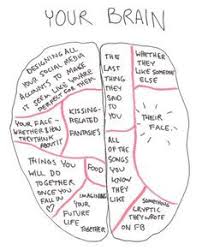 YOUR BRAIN
DESIGNING ALL
YOUR SOCIAL MEDIA
ACCOUNTS TO MAKE
IT SEEM LIKE YOU'RE
PERFECT FOR THEM
THE
LAST
THING
THEY
SAID
TO
YOU
WHETHER
THEY LIKE
SOMEONE
ELSE
YOUR FACE -
WHETHER & HOW
THEY THINK
ABOUT IT
KISSING-
RELATED
FANTASIES
THEIR
FACE
THINGS YOU
WILL DO
TOGETHER
ONCE YOU
FALL IN
FOOD
ALL
OF THE
SONGS
YOU
KNOW
THEY
LIKE
IMAGINING
YOUR
FUTURE
LIFE
TOGETHER
SOMETHING
CRYPTIC
THEY WROTE
ON FB